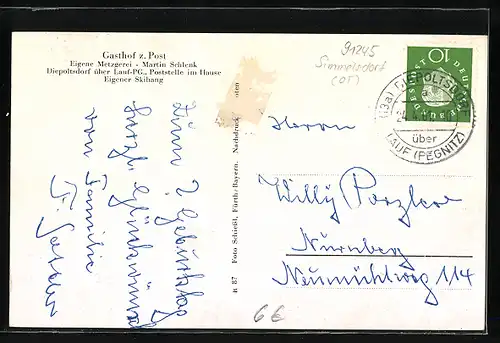 Gasthof z. Post
Eigene Metzgerei - Martin Schlenk
Diepoltsdorf über Lauf-PG., Poststelle im Hause
Eigener Skihang
Zum ?. Geburtstag
herzl. Glückwünsche
von Familie
Foto Schießl, Fürth-Bayern. Nachdruck
oten
B 87
91245
Simmelsdorf
(OT)
DEUTSCHE BUNDESPOST
10
(13a) DIEPOLTSDORF
über
LAUF (PEGNITZ)
Herrn
Willy
Nürnberg
Neumühlweg 114
6€